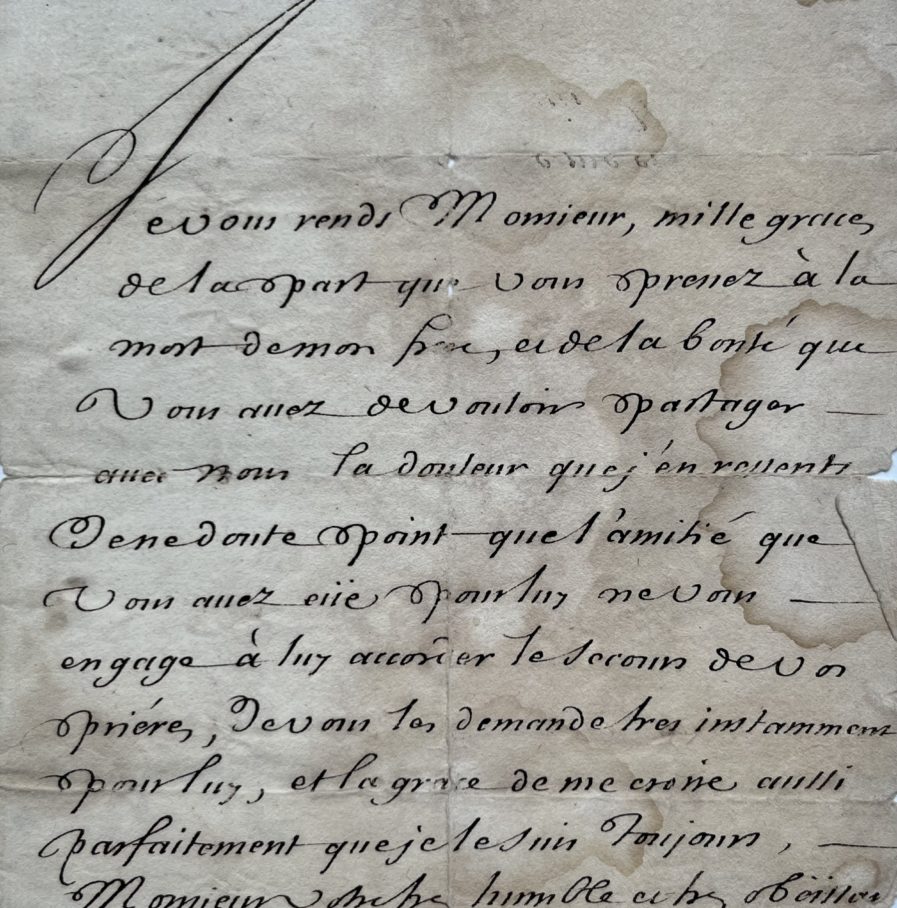 Je vous rends Monsieur, mille graces
de la part que vous prenez à la
mort de mon frere, et de la bonté que
Vous auez de vouloir partager
auec nous la douleur que j'en ressents
Je ne doute point que l'amitié que
Vous auez eüe pour luy ne vous
engage à luy accorder le secours de vos
priéres, Je vous les demande tres instamment
pour luy, et la grace de me croire aussi
parfaitement que je le suis Toujours,
Monsieur Votre tres humble et tres obëissant